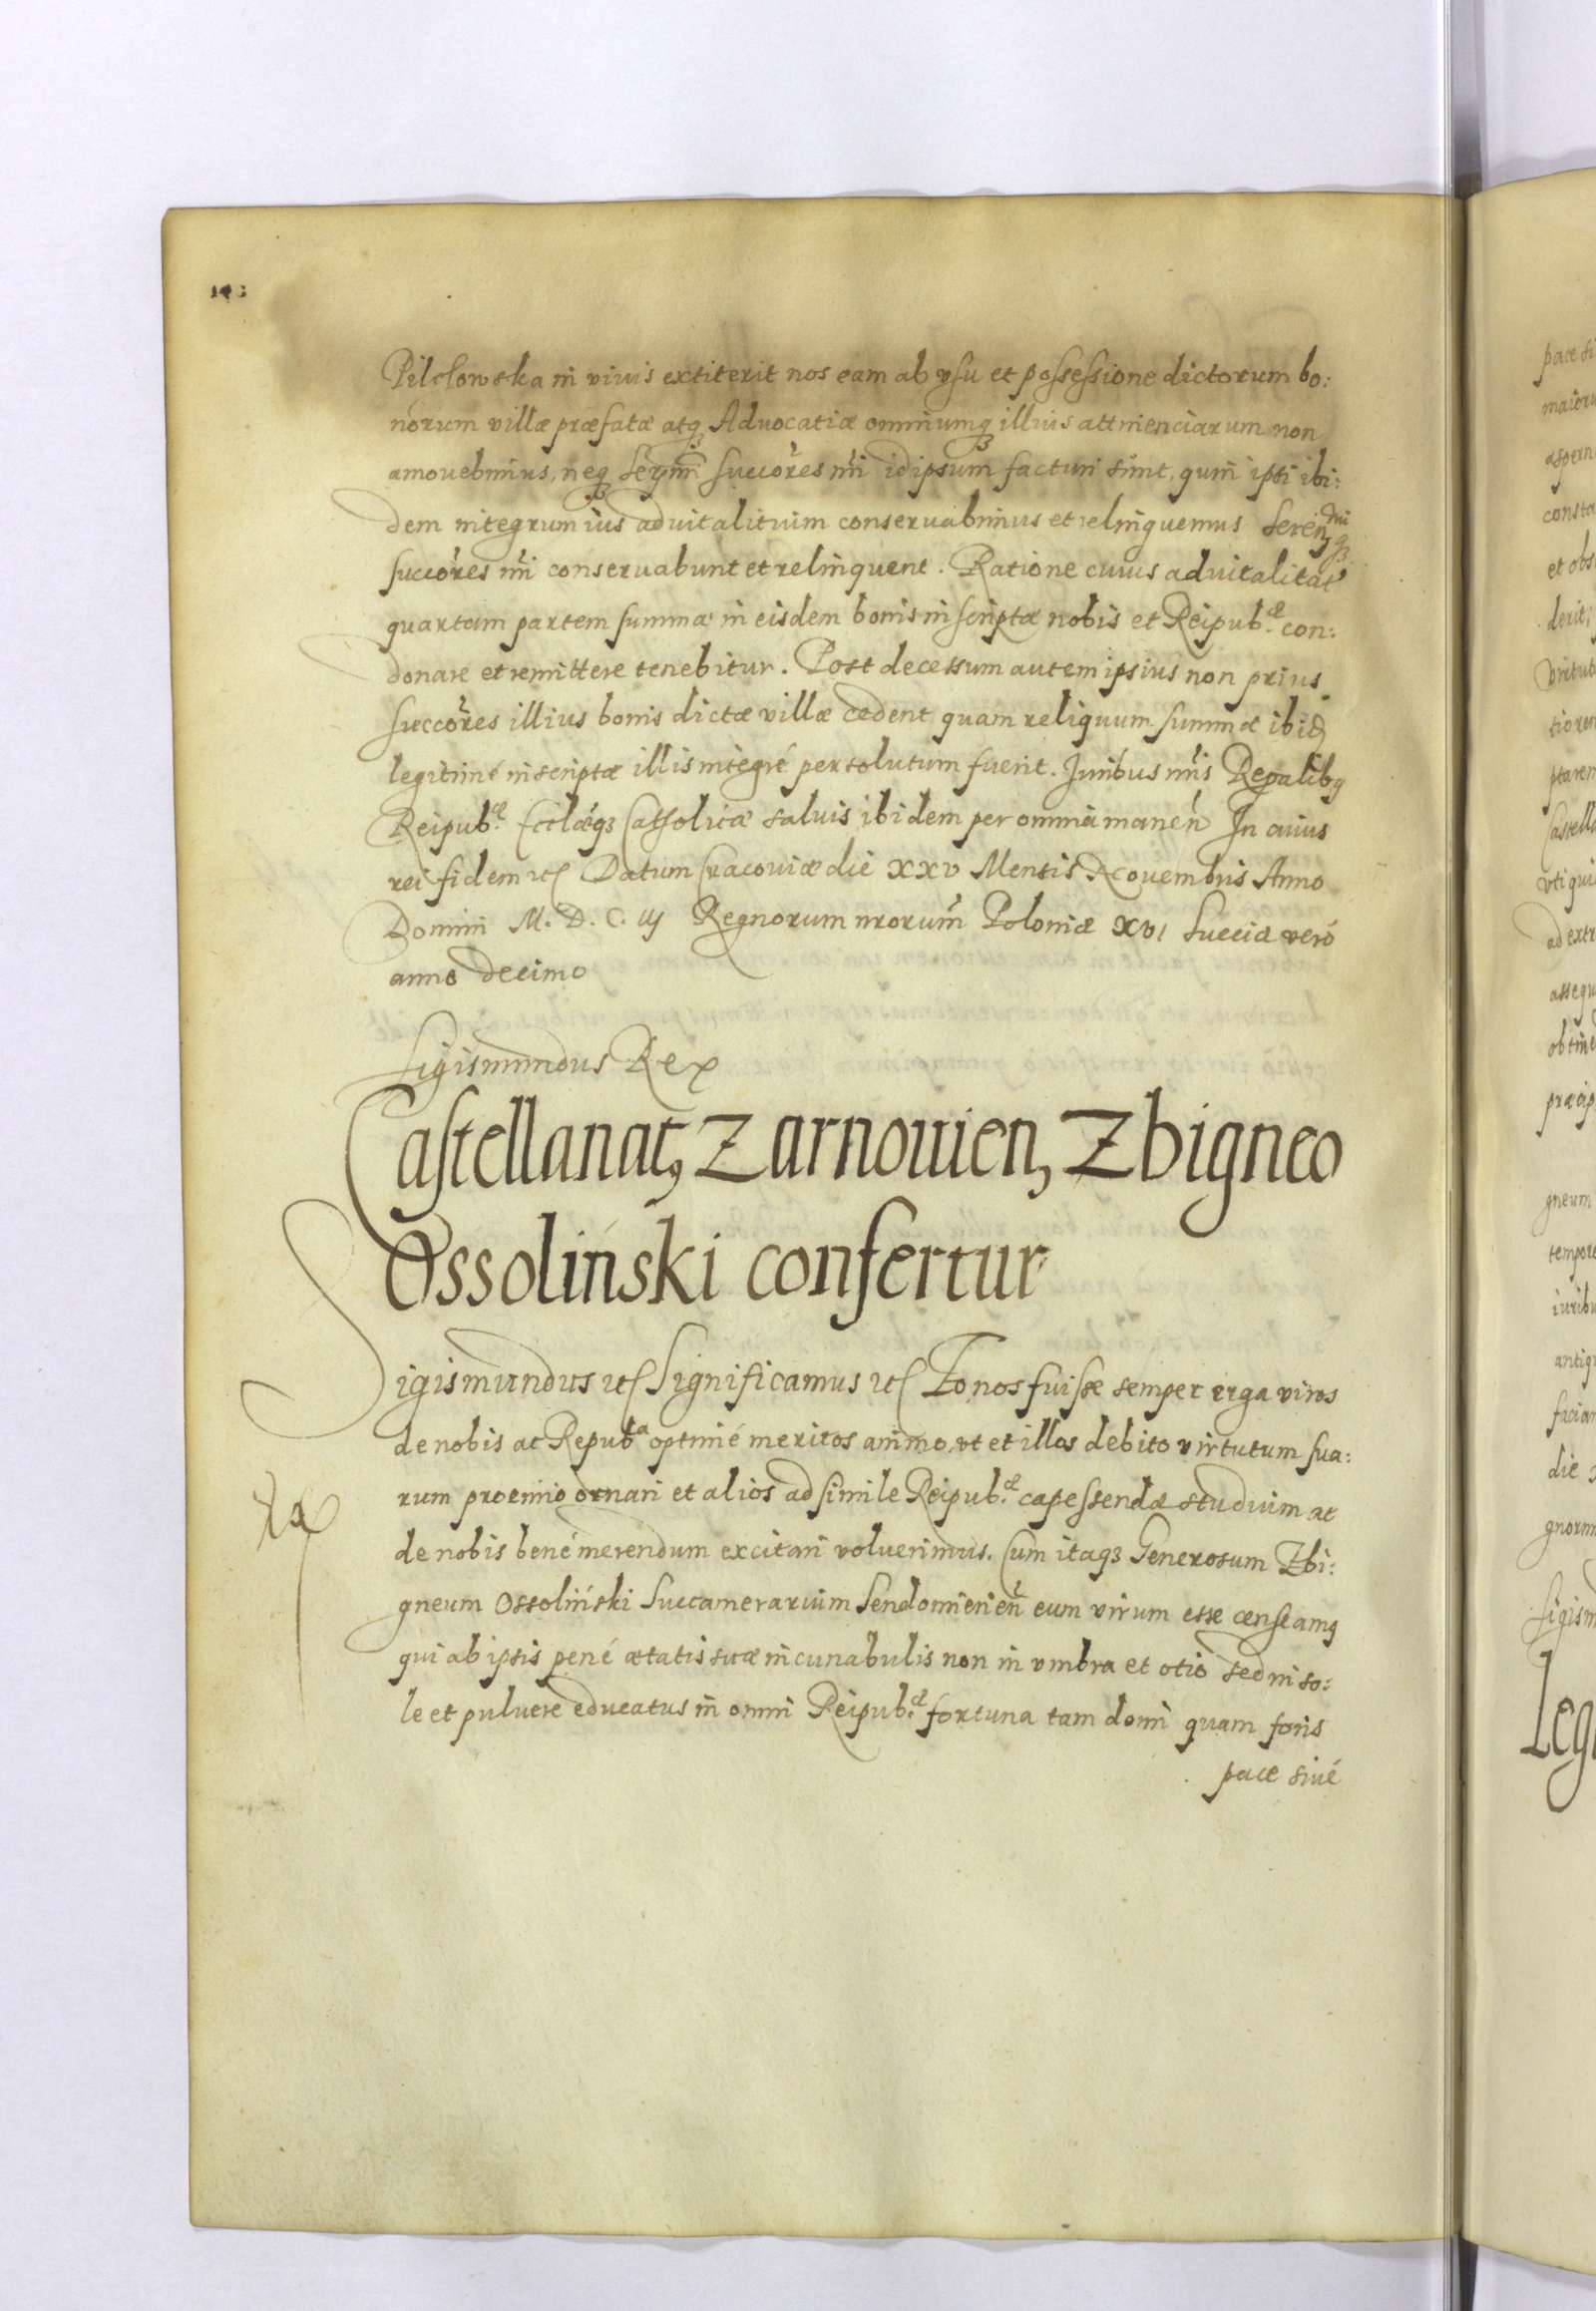 Pilclowska in viuis extiterit nos eam ab vsu et possessione dictorum bo:
norum villæ præfatæ atqꝫ Aduocatiæ omniumqꝫ illius attinenciarum non
amouebimus, neqꝫ Serᵐⁱ succores nr̃i idipsum facturi sint, quin ipsi ibi:
dem integrum ius aduitalitium conseruabimus et relinquemus Serenᵐⁱqꝫ
succores nr̃i conseruabunt et relinquent. Ratione cuius aduitalitat9
quartam partem summæ in eisdem bonis inscriptæ nobis et Reipub:æ con:
donare et remittere tenebitur. Post decessum autem ipsius non prius
succores illius bonis dictæ villæ cedent quam reliquum summæ ibid
legitimé inscriptæ illis integré persolutum fuerit. Juribus nr̃is Regalibq
Reipub:æ Ecclæqꝫ Catholicæ saluis ibidem per omnia manen̄ In cuius
rei fidem etc Datum Cracouiæ die XXV Mensis Nouembris Anno
Domini M. D. C. iij Regnorum nrorum̃ Poloniæ XVI Sueciæ veró
anno decimo
Sigismundus Rex
Castellanat9 Zarnouien, Zbigneo
Ossoliński confertur
Sigismundus etc Significamus etc Eo nos fuisse semper erga viros
de nobis ac Repubᵃ optimé meritos animo, vt et illos debito virtutum sua:
rum proemio ornari et alios ad simile Reipub:æ capessendæ studium ac
de nobis bené merendum excitari voluerimus. Cum itaqꝫ Generosum Zbi:
gneum Ossoliński Succamerarium Sendomirien̄ eum virum esse censeamq
qui ab ipsis pené ætatis suæ incunabulis non in vmbra et otio sed in so:
le et puluere educatus in omni Reipub:æ fortuna tam domi quam foris
pace siué